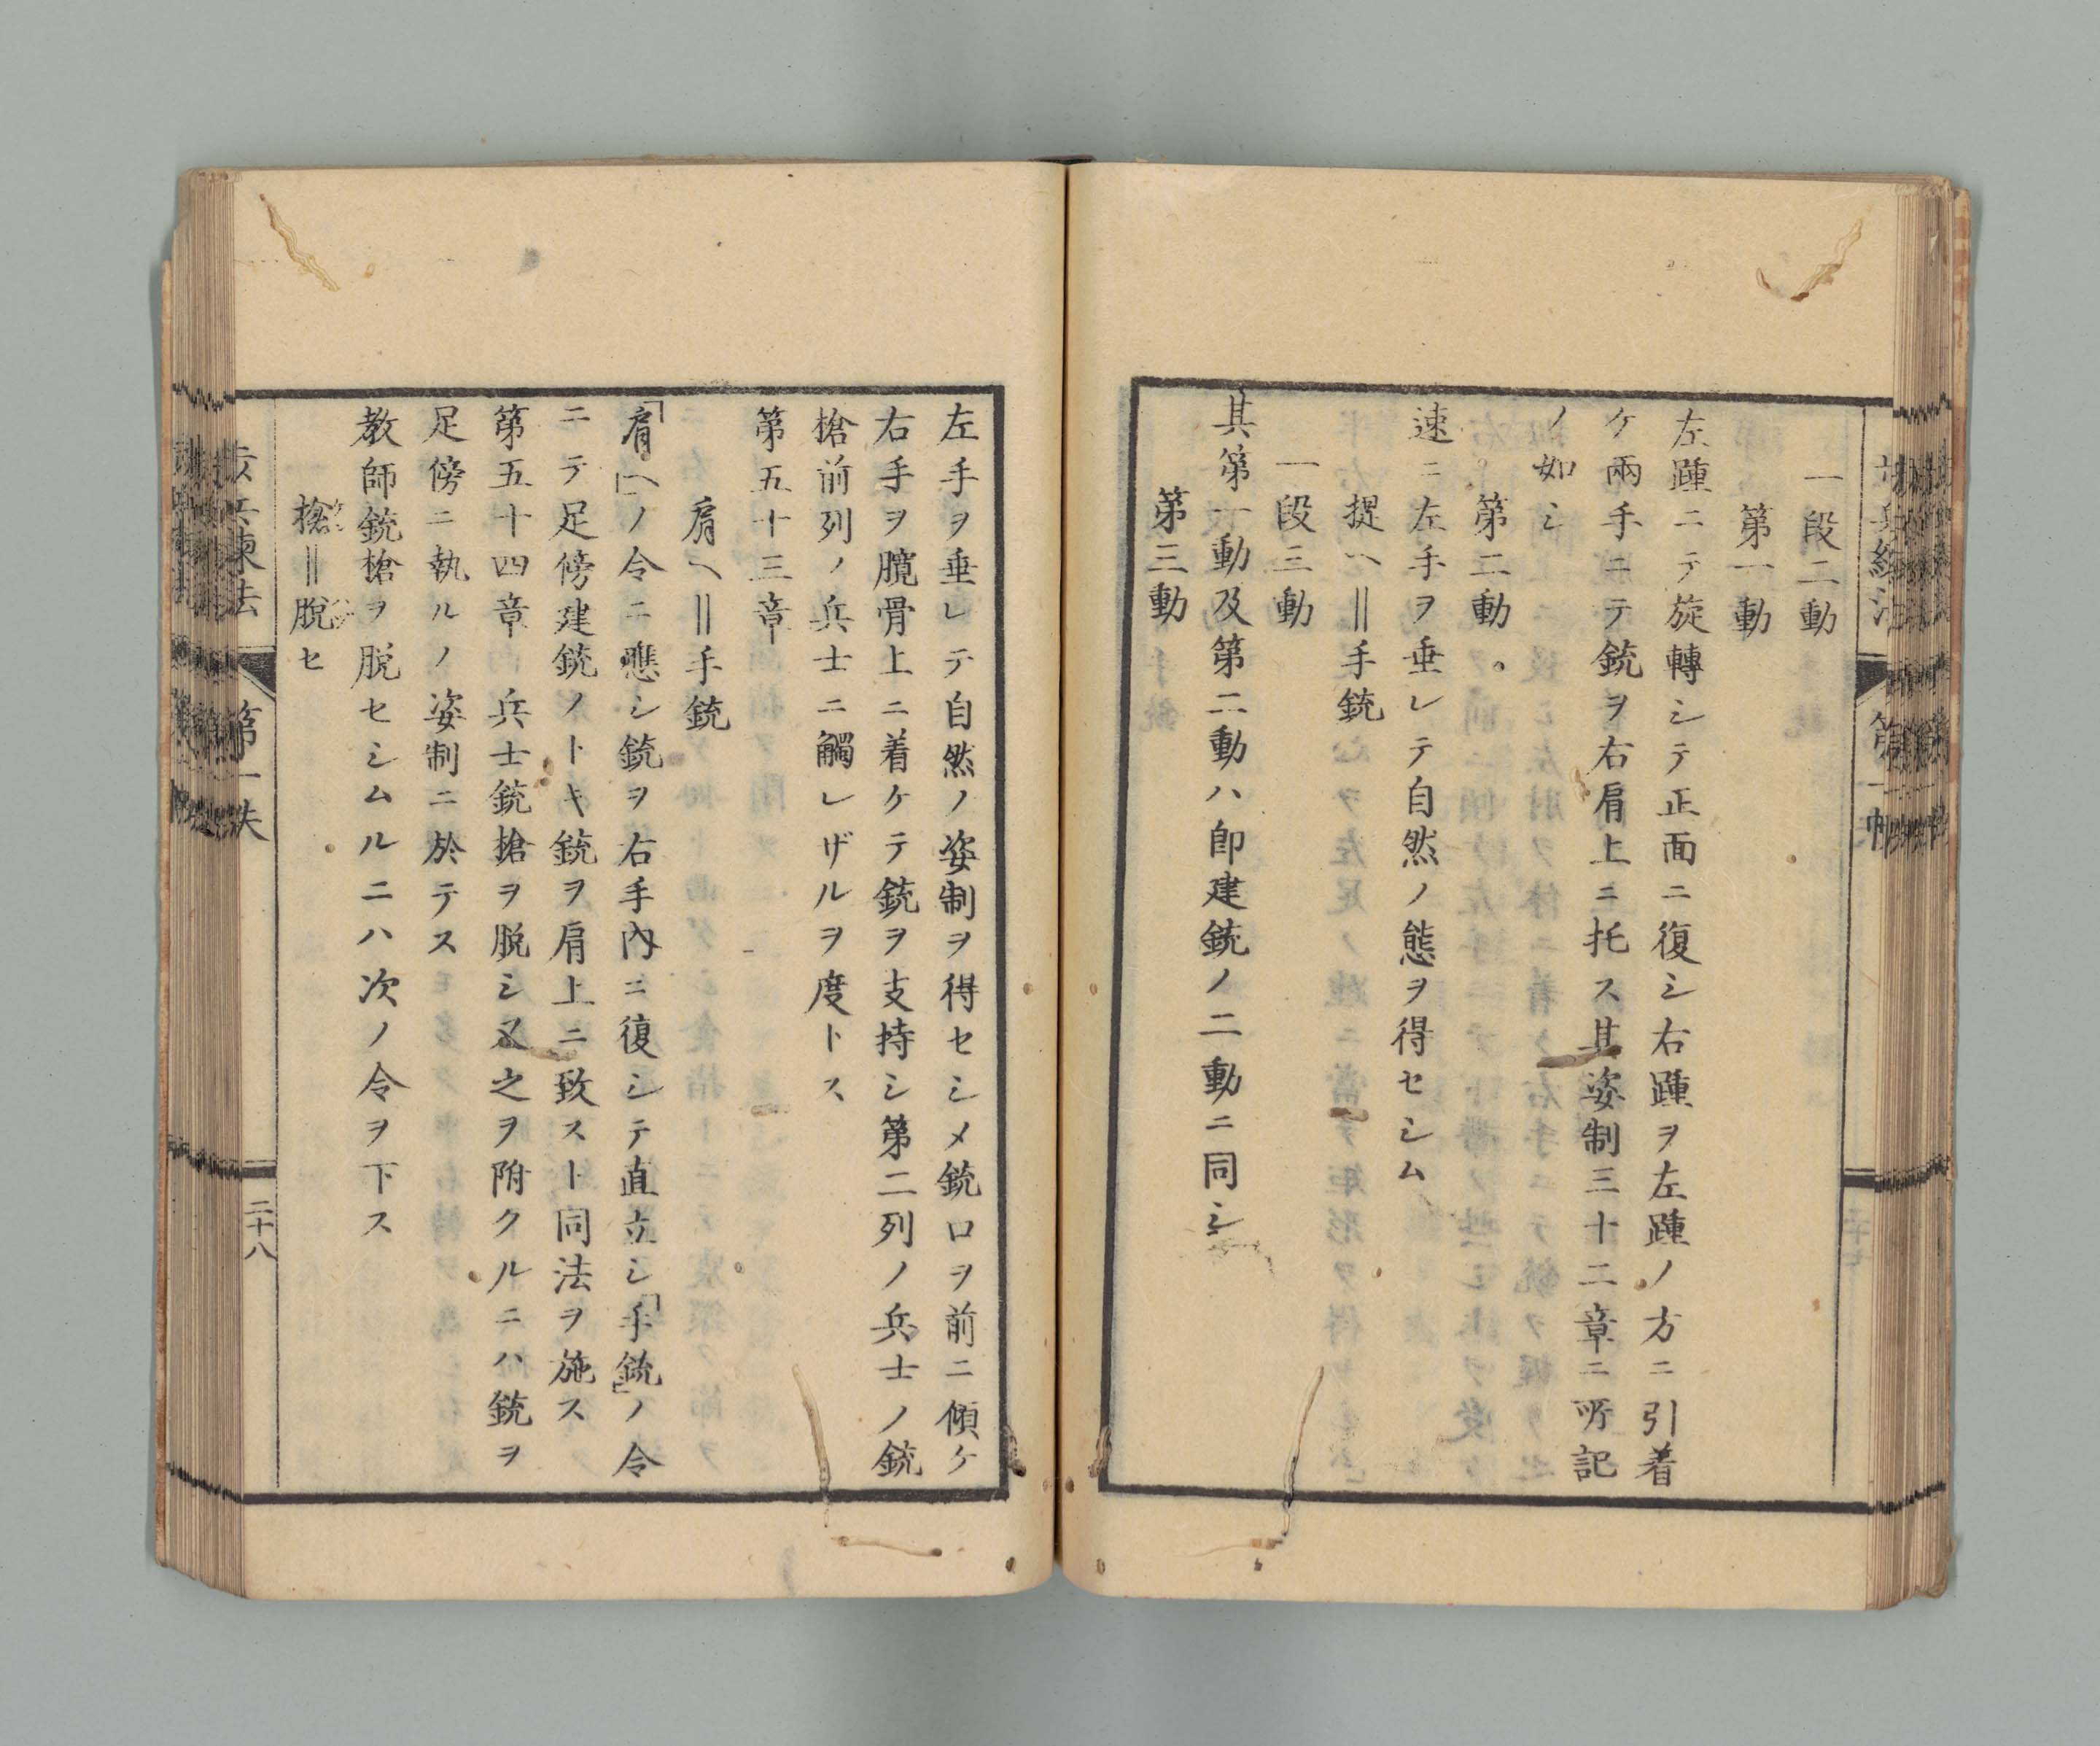 一段二動
第一動
左踵ニテ旋轉シテ正面ニ復シ右踵ヲ左踵ノ方ニ引着
ケ兩手ニテ銃ヲ右肩上ニ托ス其姿制三十二章ニ所記
ノ如シ
第二動。
速ニ左手ヲ垂レテ自然ノ態ヲ得セシム
提ヘ‖手銃
一段三動
其第一動及第二動ハ卽建銃ノ二動ニ同シ
第三動
左手ヲ垂レテ自然ノ姿制ヲ得セシメ銃口ヲ前ニ傾ケ
右手ヲ臗骨上ニ着ケテ銃ヲ支持シ第二列ノ兵士ノ銃
槍前列ノ兵士ニ觸レザルヲ度トス
第五十三章
肩ヘ‖手銃
「肩ヘ」ノ令ニ應シ銃ヲ右手內ニ復シテ直立シ「手銃」ノ令
ニテ足傍建銃ノトキ銃ヲ肩上ニ致スト同法ヲ施ス
第五十四章 兵士銃槍ヲ脱シ又之ヲ附クルニハ銃ヲ
足傍ニ執ルノ姿制ニ於テス
教師銃槍ヲ脱セシムルニハ次ノ令ヲ下ス
槍‖脱セ
第一帙
二十八